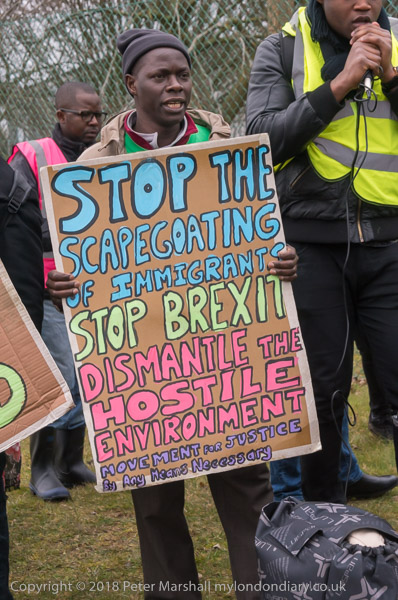 STOP THE
SCAPEGOATING
OF IMMIGRANTS
STOP BREXIT
DISMANTLE THE
HOSTILE
ENVIRONMENT
MOVEMENT FOR JUSTICE
By Any Means Necessary
Copyright © 2018 Peter Marshall mylondondiary.co.uk